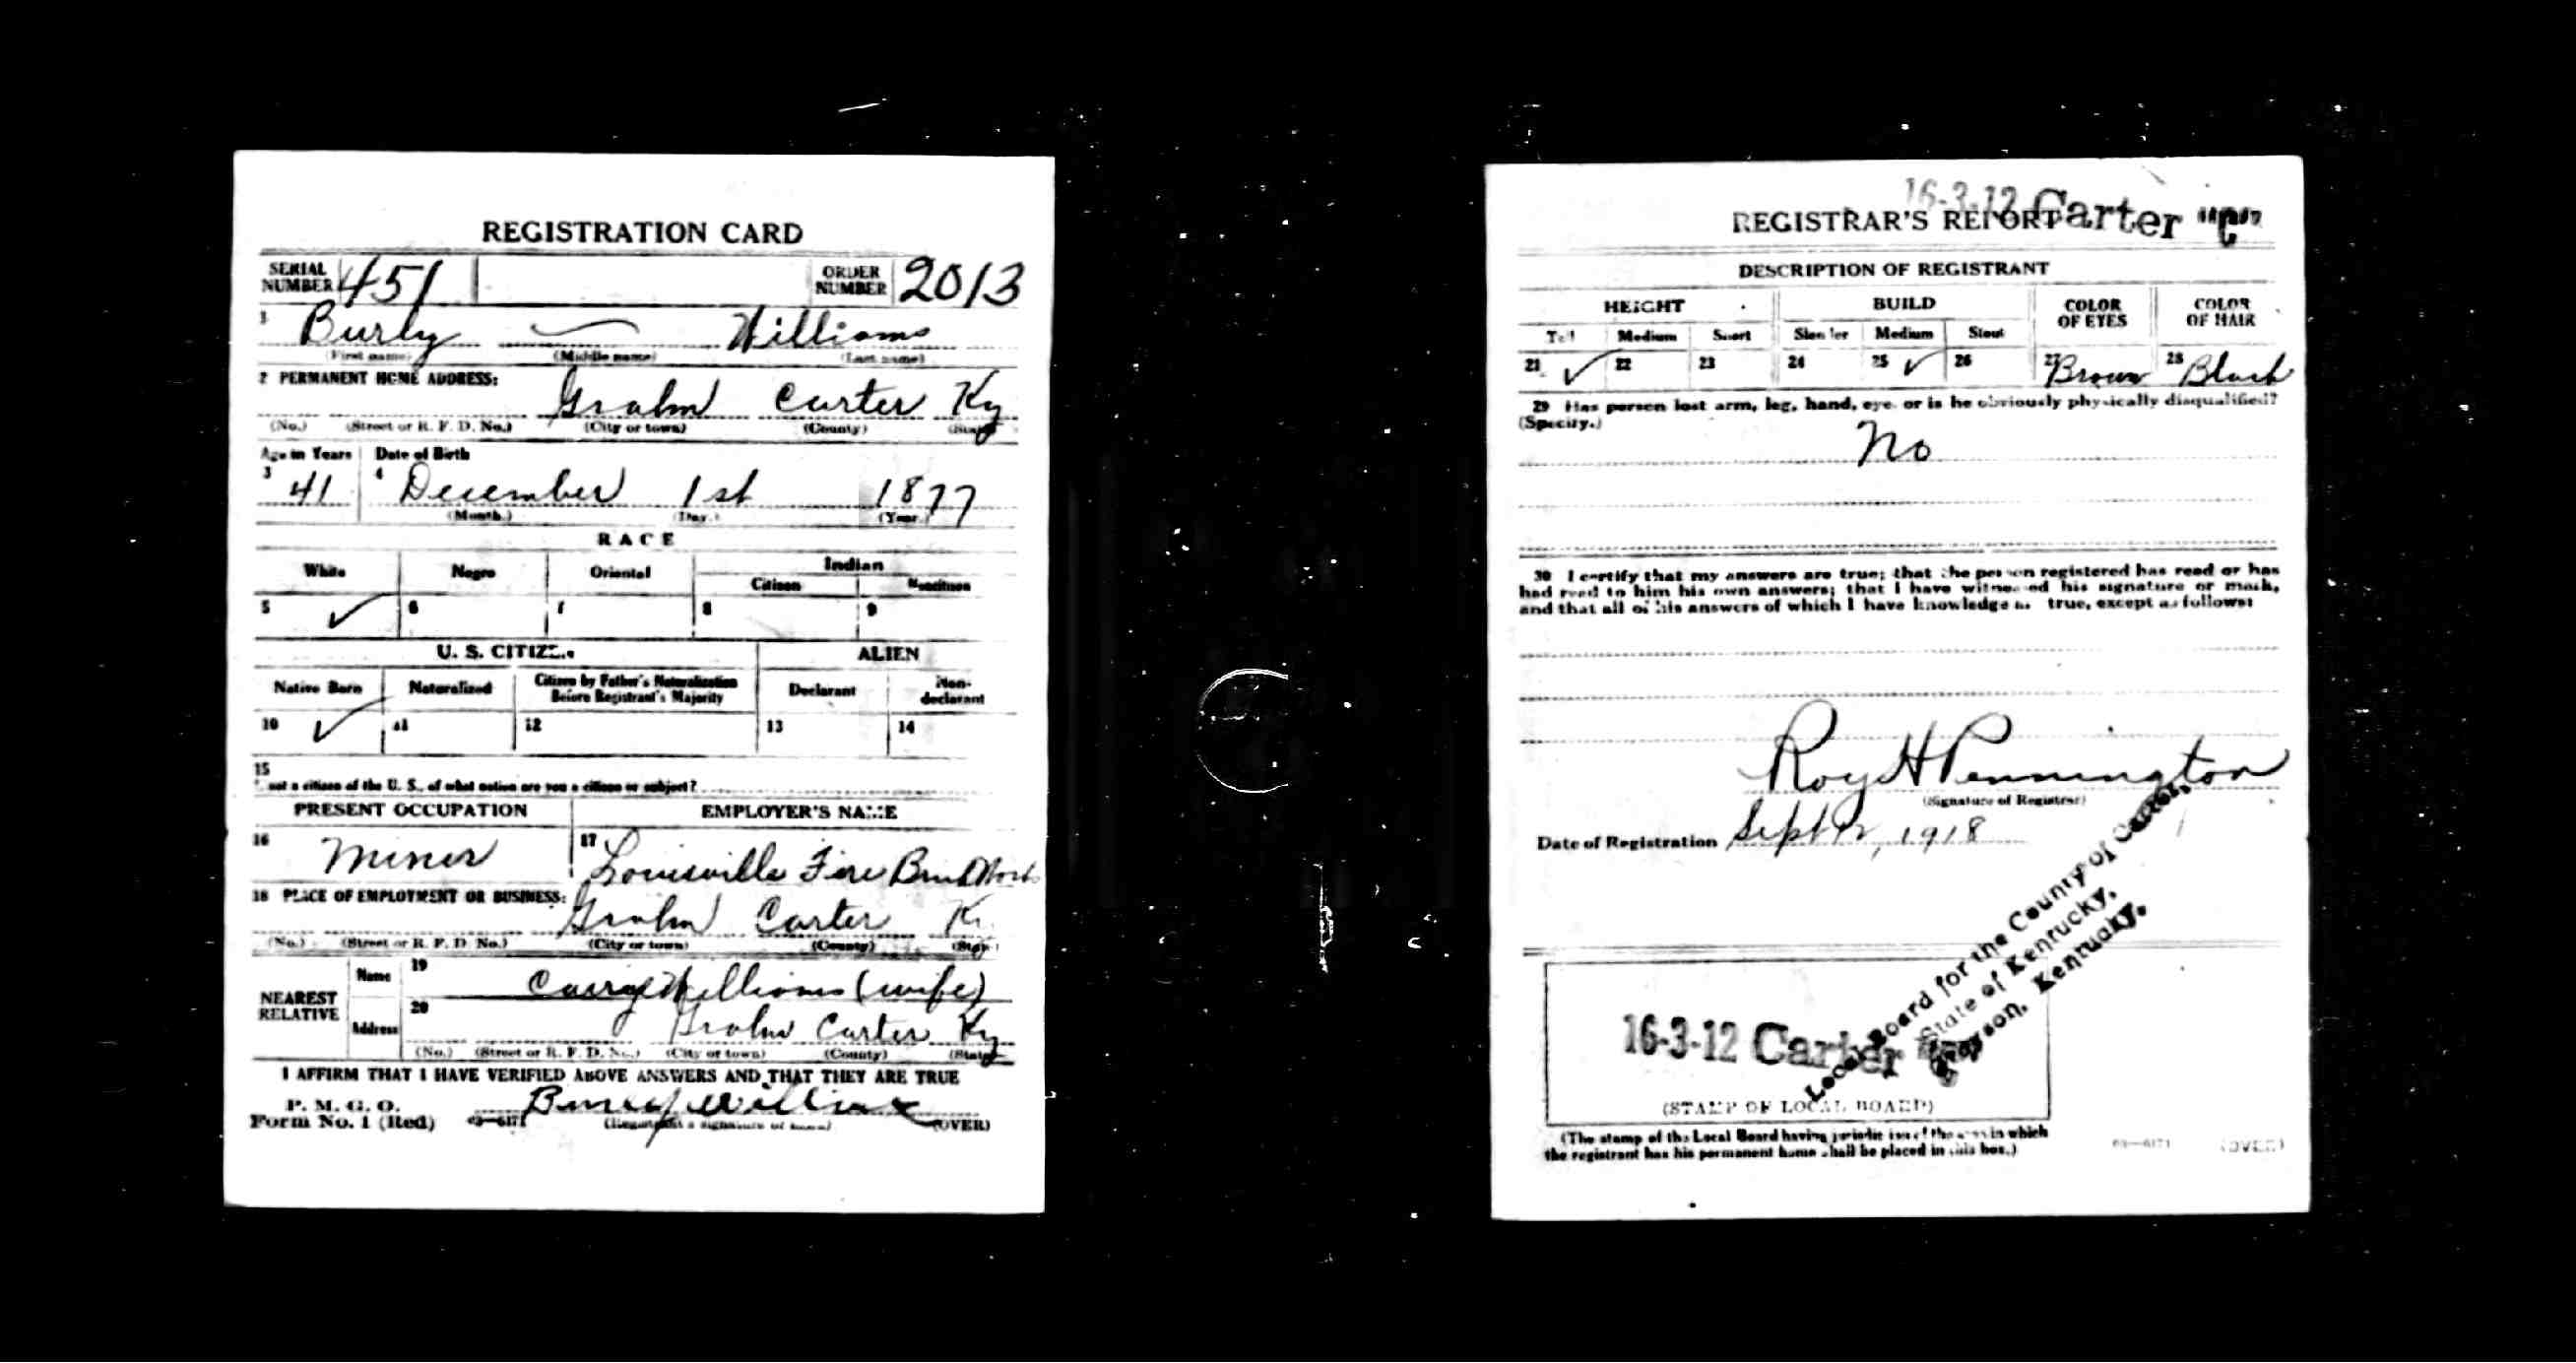 REGISTRATION CARD
SERIAL NUMBER 451 ORDER NUMBER 2013
1 Burly — Williams
(First name) (Middle name) (Last name)
2 PERMANENT HOME ADDRESS:
Grahn Carter Ky
(No.) (Street or R. F. D. No.) (City or town) (County) (State)
Age in Years Date of Birth
3 41 4 December 1st 1877
(Month.) (Day.) (Year.)
RACE
White Negro Oriental Indian
Citizen Noncitizen
5 ✓ 6 7 8 9
U. S. CITIZEN ALIEN
Native Born Naturalized Citizen by Father's Naturalization Before Registrant's Majority Declarant Non-declarant
10 ✓ 11 12 13 14
15
not a citizen of the U. S., of what nation are you a citizen or subject?
PRESENT OCCUPATION EMPLOYER'S NAME
16 Miner 17 Louisville Fire Brick Works
18 PLACE OF EMPLOYMENT OR BUSINESS:
Grahn Carter Ky
(No.) (Street or R. F. D. No.) (City or town) (County) (State)
NEAREST RELATIVE
Name 19 Williams (wife)
Address 20 Grahn Carter Ky
(No.) (Street or R. F. D. No.) (City or town) (County) (State)
I AFFIRM THAT I HAVE VERIFIED ABOVE ANSWERS AND THAT THEY ARE TRUE
P. M. G. O.
Form No. 1 (Red) 03—6171 Burley Williams
(Registrant's signature or mark) (OVER)
16-3-12 Carter "C"
REGISTRAR'S REPORT
DESCRIPTION OF REGISTRANT
HEIGHT BUILD COLOR OF EYES COLOR OF HAIR
Tall Medium Short Slender Medium Stout
21 ✓ 22 23 24 25 ✓ 26 27 Brown 28 Black
29 Has person lost arm, leg, hand, eye, or is he obviously physically disqualified?
(Specify.)
No
30 I certify that my answers are true; that the person registered has read or has
had read to him his own answers; that I have witnessed his signature or mark,
and that all of his answers of which I have knowledge are true, except as follows:
Roy H Pennington
(Signature of Registrar)
Date of Registration Sept 12, 1918
Local Board for the County of Carter,
State of Kentucky,
Grayson, Kentucky.
16-3-12 Carter "C"
(STAMP OF LOCAL BOARD)
(The stamp of the Local Board having jurisdiction of the area in which
the registrant has his permanent home shall be placed in this box.)
03—6171 (OVER)